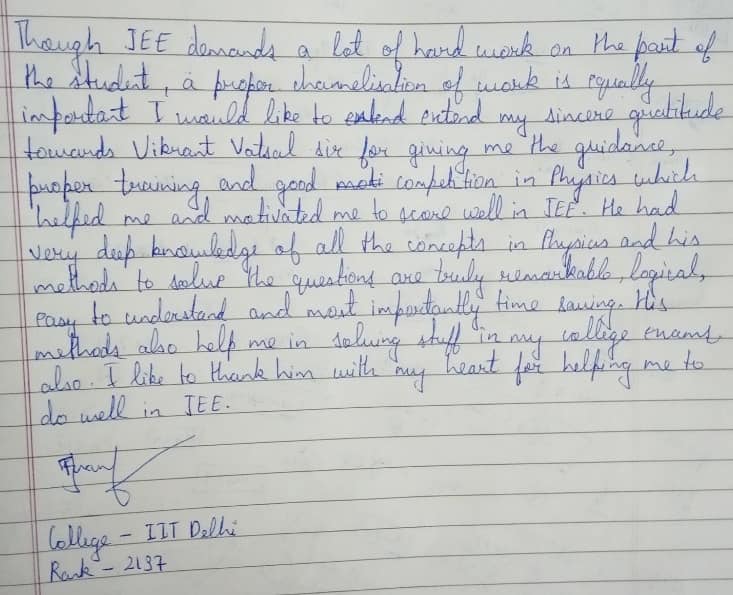 Though JEE demands a lot of hard work on the part of
the student, a proper channelisation of work is equally
important I would like to extend my sincere gratitude
towards Vikrant Vatsal sir for giving me the guidance,
proper training and good competition in Physics which
helped me and motivated me to score well in JEE. He had
very deep knowledge of all the concepts in Physics and his
methods to solve the questions are truly remarkable, logical,
easy to understand and most importantly time saving. His
methods also help me in solving stuff in my college exams
also. I like to thank him with my heart for helping me to
do well in JEE.
College - IIT Delhi
Rank - 2137